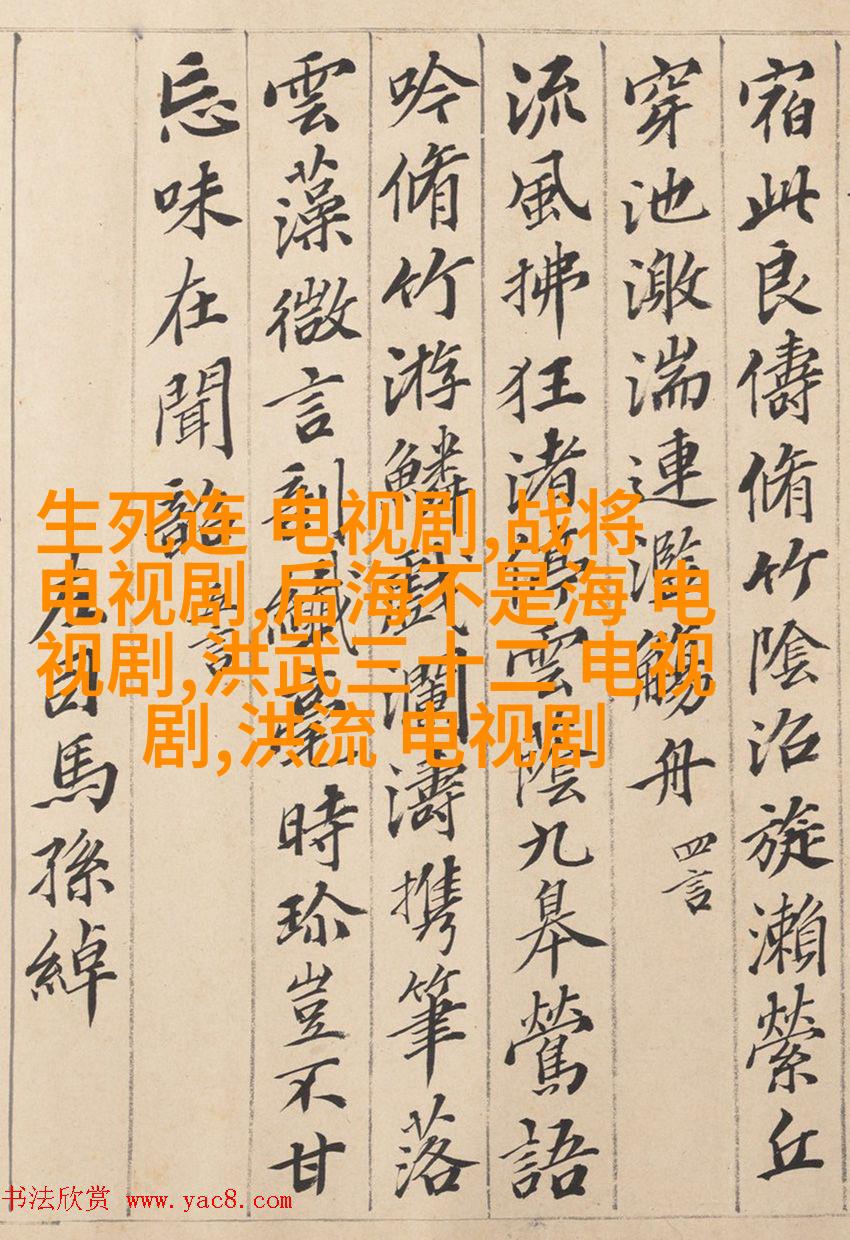 宿此良儔脩竹陰沿旋瀬縈丘
穿池激湍連濫觴舟 四言
流風拂狂渚停雲蔭九皋鶯語
吟脩竹游鱗戲瀾濤携筆落
雲藻微言剖纖毫時珍豈不甘
忘味在聞韶 五言
左司馬孫綽
生死连 电视剧,战将
电视剧,后海不是海 电
视剧,洪武三十二 电视
剧,洪流 电视剧
书法欣赏 www.yac8.com